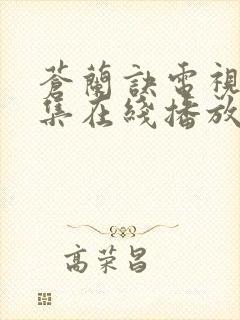 蒼蘭訣電視
集在綫播放
高荣昌